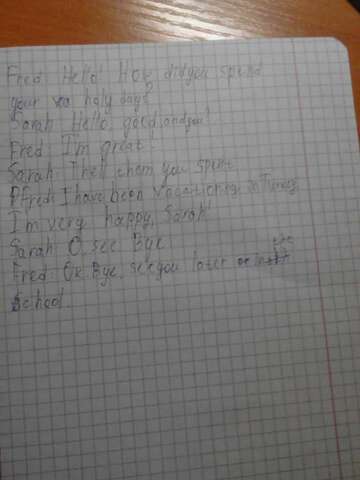 Fred Hello! How did you spend
your holy days?
Sarah Hello, good and you!
Fred: I'm great!
Sarah: them you spent
Fred: I have been vacationing in
I'm very happy, Sarah!
Sarah O, see Bye
Fred: Ok Bye, see you later
School